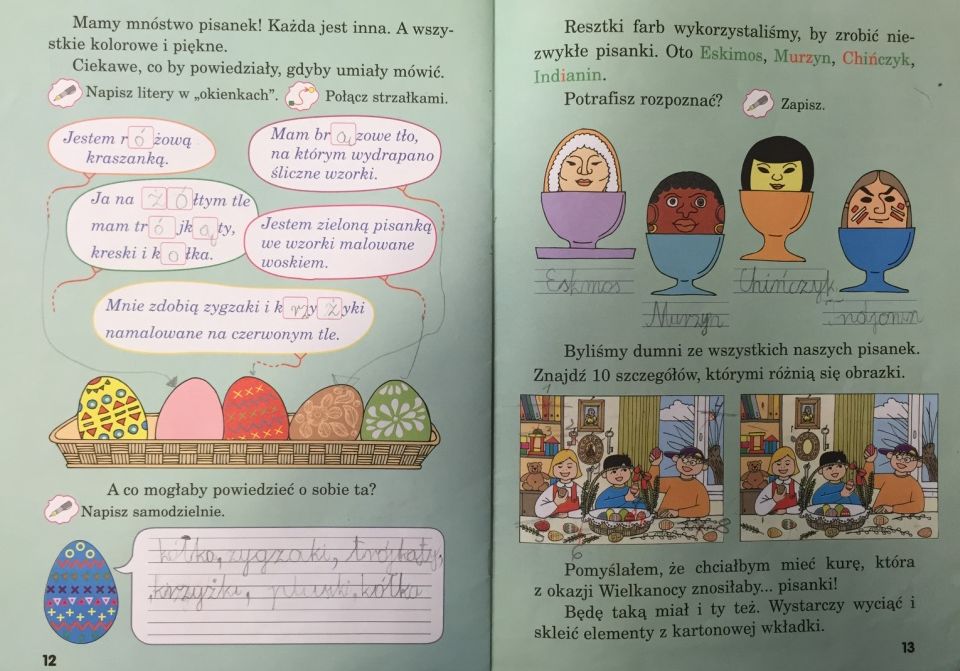 Mamy mnóstwo pisanek! Każda jest inna. A wszy-
stkie kolorowe i piękne.
Ciekawe, co by powiedziały, gdyby umiały mówić.
Napisz litery w „okienkach”. Połącz strzałkami.
Jestem różową
kraszanką.
Mam brązowe tło,
na którym wydrapano
śliczne wzorki.
Ja na żółtym tle
mam trójkąty,
kreski i kółka.
Jestem zieloną pisanką
we wzorki malowane
woskiem.
Mnie zdobią zygzaki i krzyżyki
namalowane na czerwonym tle.
A co mogłaby powiedzieć o sobie ta?
Napisz samodzielnie.
kółko, zygzaki, trójkąty,
krzyżyki, kółka
12
Resztki farb wykorzystaliśmy, by zrobić nie-
zwykłe pisanki. Oto Eskimos, Murzyn, Chińczyk,
Indianin.
Potrafisz rozpoznać? Zapisz.
Eskimos
Chińczyk
Murzyn
Byliśmy dumni ze wszystkich naszych pisanek.
Znajdź 10 szczegółów, którymi różnią się obrazki.
6
Pomyślałem, że chciałbym mieć kurę, która
z okazji Wielkanocy znosiłaby... pisanki!
Będę taką miał i ty też. Wystarczy wyciąć i
skleić elementy z kartonowej wkładki.
13